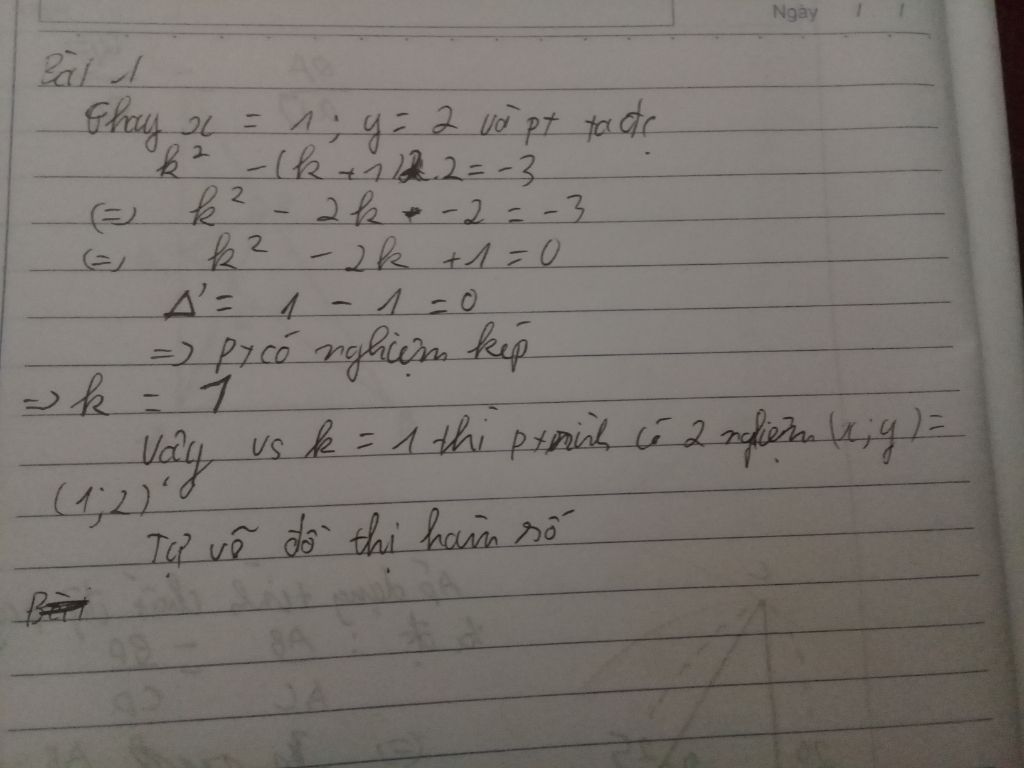 Ngày / /
Bài 1
Thay x = 1 ; y = 2 và pt ta đc
k² - (k + 1) . 2 = -3
(=) k² - 2k - 2 = -3
(=) k² - 2k + 1 = 0
Δ' = 1 - 1 = 0
=> pt có nghiệm kép
=> k = 1
Vậy vs k = 1 thì ptrình có 2 nghiệm (x; y) =
(1; 2)
Tự vẽ đồ thị hàm số